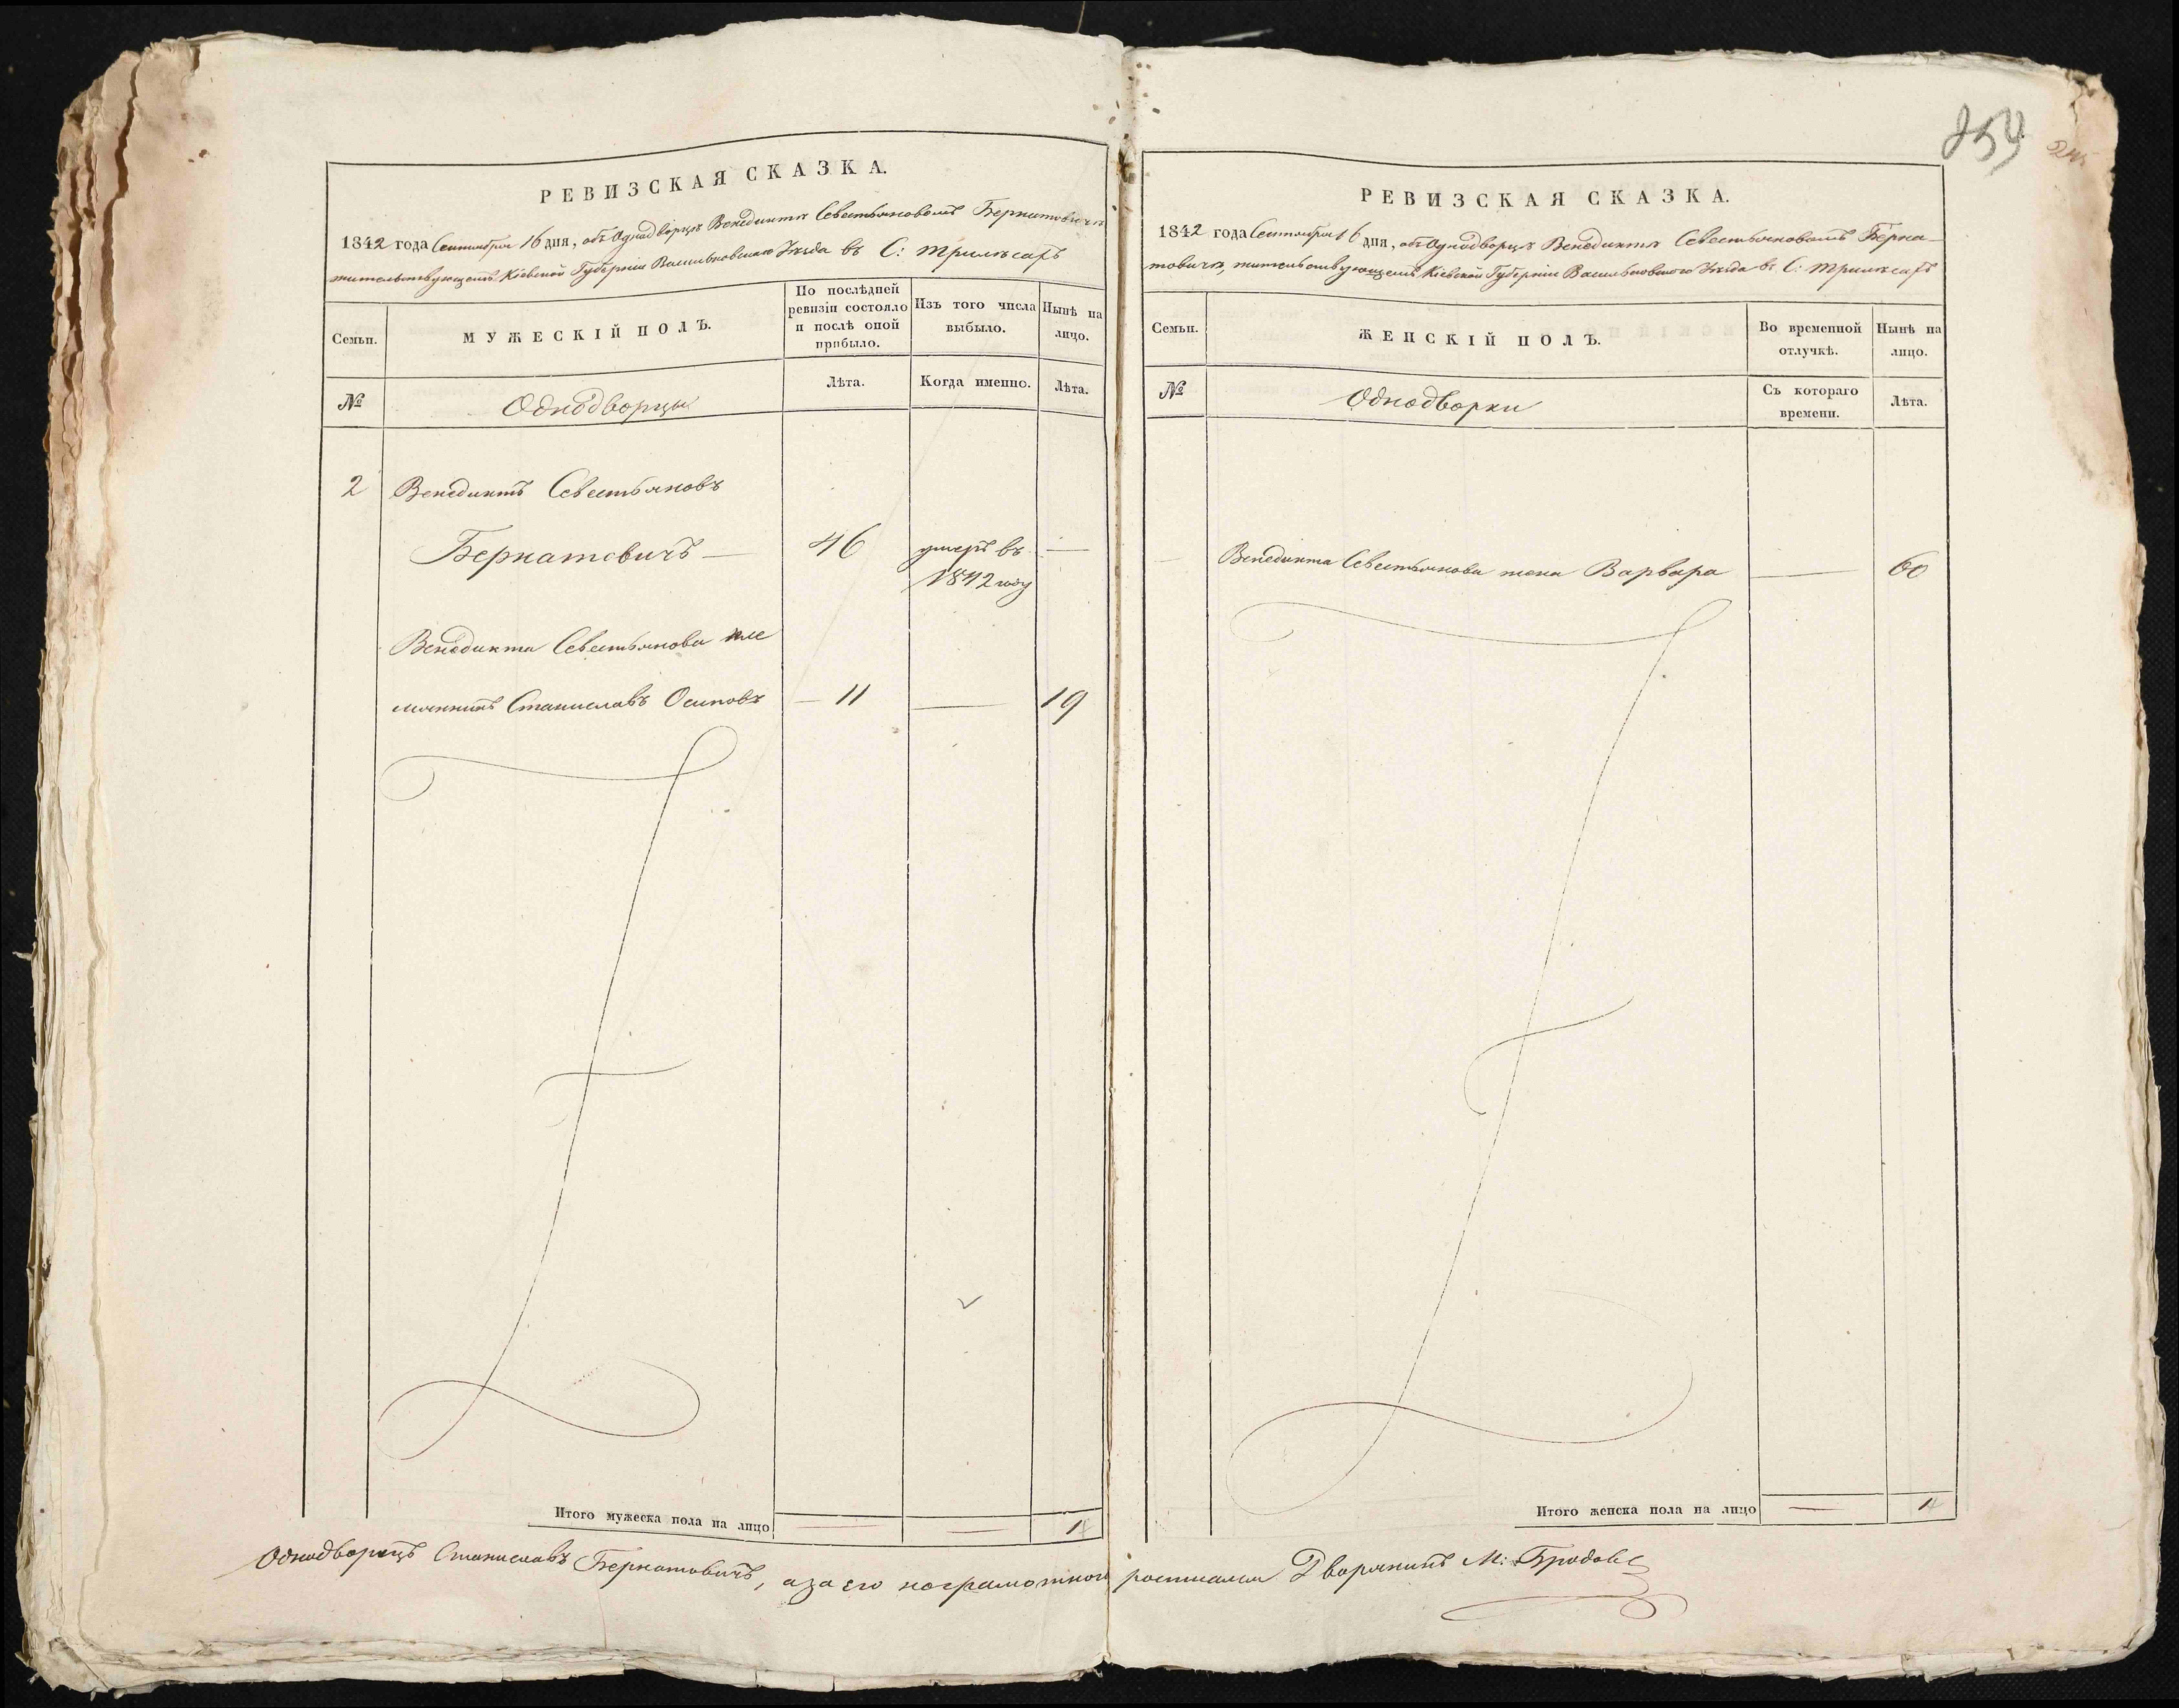 РЕВИЗСКАЯ СКАЗКА.
1842 года Сентября 16 дня, объ Однодворцѣ Венедиктѣ Севестьяновомъ Бернатовичѣ
жительствующемъ Кіевской Губерніи Васильковскаго Уѣзда въ С: Трилѣсахъ
Семьи.
МУЖЕСКІЙ ПОЛЪ.
По послѣдней
ревизіи состояло
и послѣ оной
прибыло.
Изъ того числа
выбыло.
Нынѣ на
лицо.
№
Однодворцы
Лѣта.
Когда именно.
Лѣта.
2 Венедиктъ Севестьяновъ
Бернатовичъ — 46 умеръ въ —
1842 году
Венедикта Севестьянова пле
мянникъ Станиславъ Осиповъ — 11 — 19
Итого мужеска пола на лицо — — 1
854
245
РЕВИЗСКАЯ СКАЗКА.
1842 года Сентября 16 дня, объ Однодворцѣ Венедиктѣ Севестьяновомъ Берна-
товичѣ, жительствующемъ Кіевской Губерніи Васильковскаго Уѣзда въ С: Трилѣсахъ
Семьи.
ЖЕНСКІЙ ПОЛЪ.
Во временной
отлучкѣ.
Нынѣ на
лицо.
№
Однодворки
Съ котораго
времени.
Лѣта.
— Венедикта Севестьянова жена Варвара — 60
Итого женска пола на лицо — 1
Однодворецъ Станиславъ Бернатовичъ, а за его неграмотного росписался Дворянинъ М: